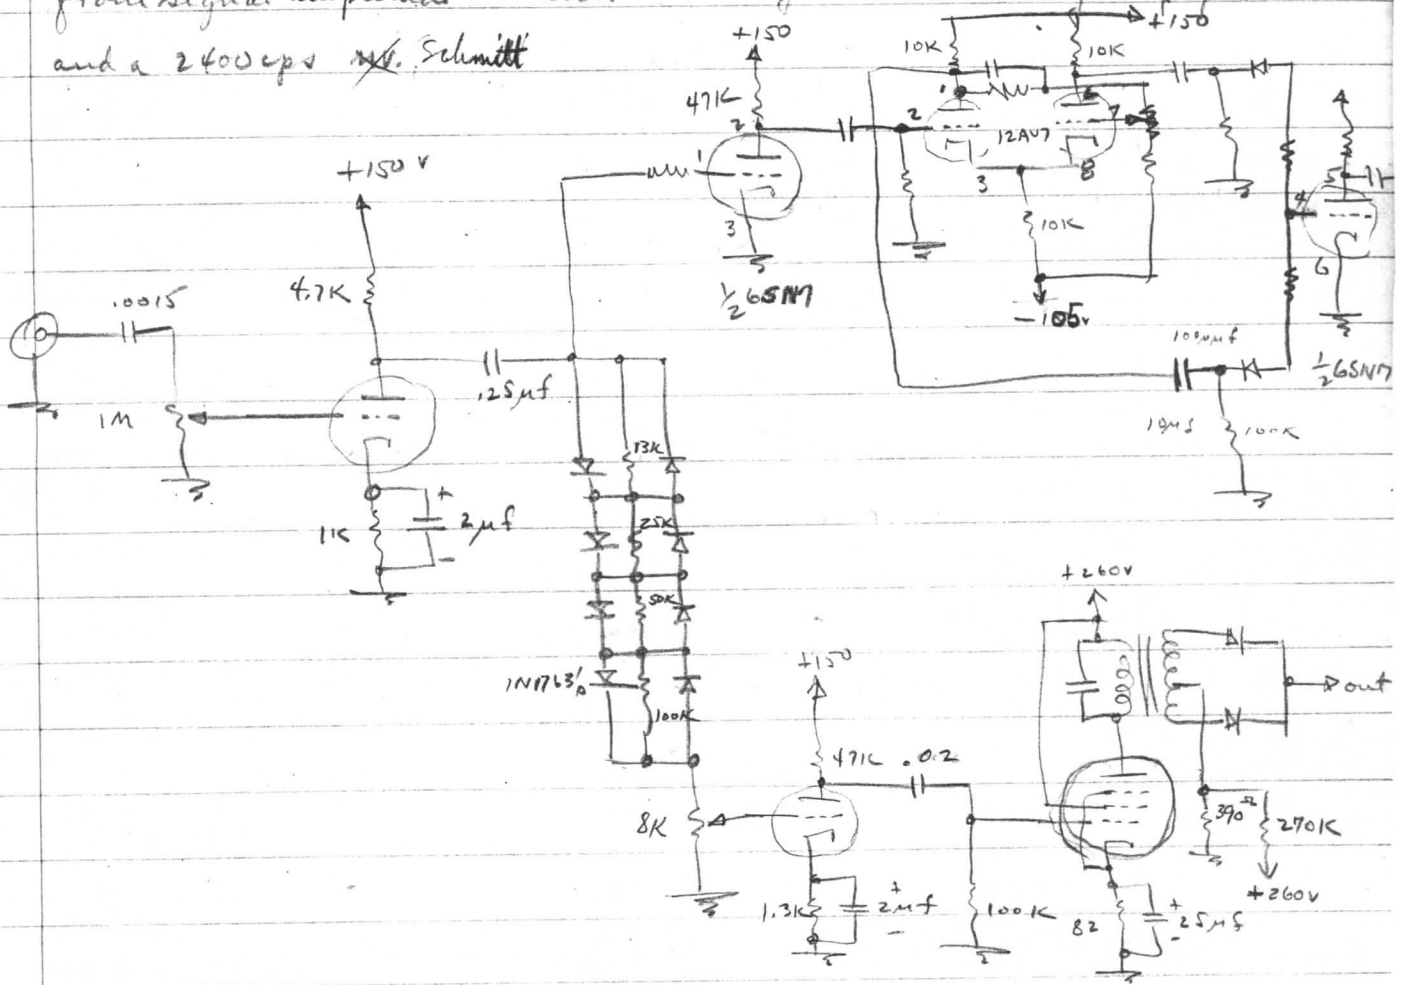 and a 2400cps Schmitt
+150
+150
10K
10K
47K
2
1
3
½ 6SN7
2
1
12AU7
6
7
3
8
10K
-105v
5
4
6
½ 6SN7
100µµf
100K
+150 v
4.7K
.0015
1M
.25µf
1K
+
2µf
-
13K
25K
50K
100K
8K
+150
47K
.02
1.3K
+
2µf
-
100K
+260v
out
390Ω
270K
+260v
82
+
25µf
-